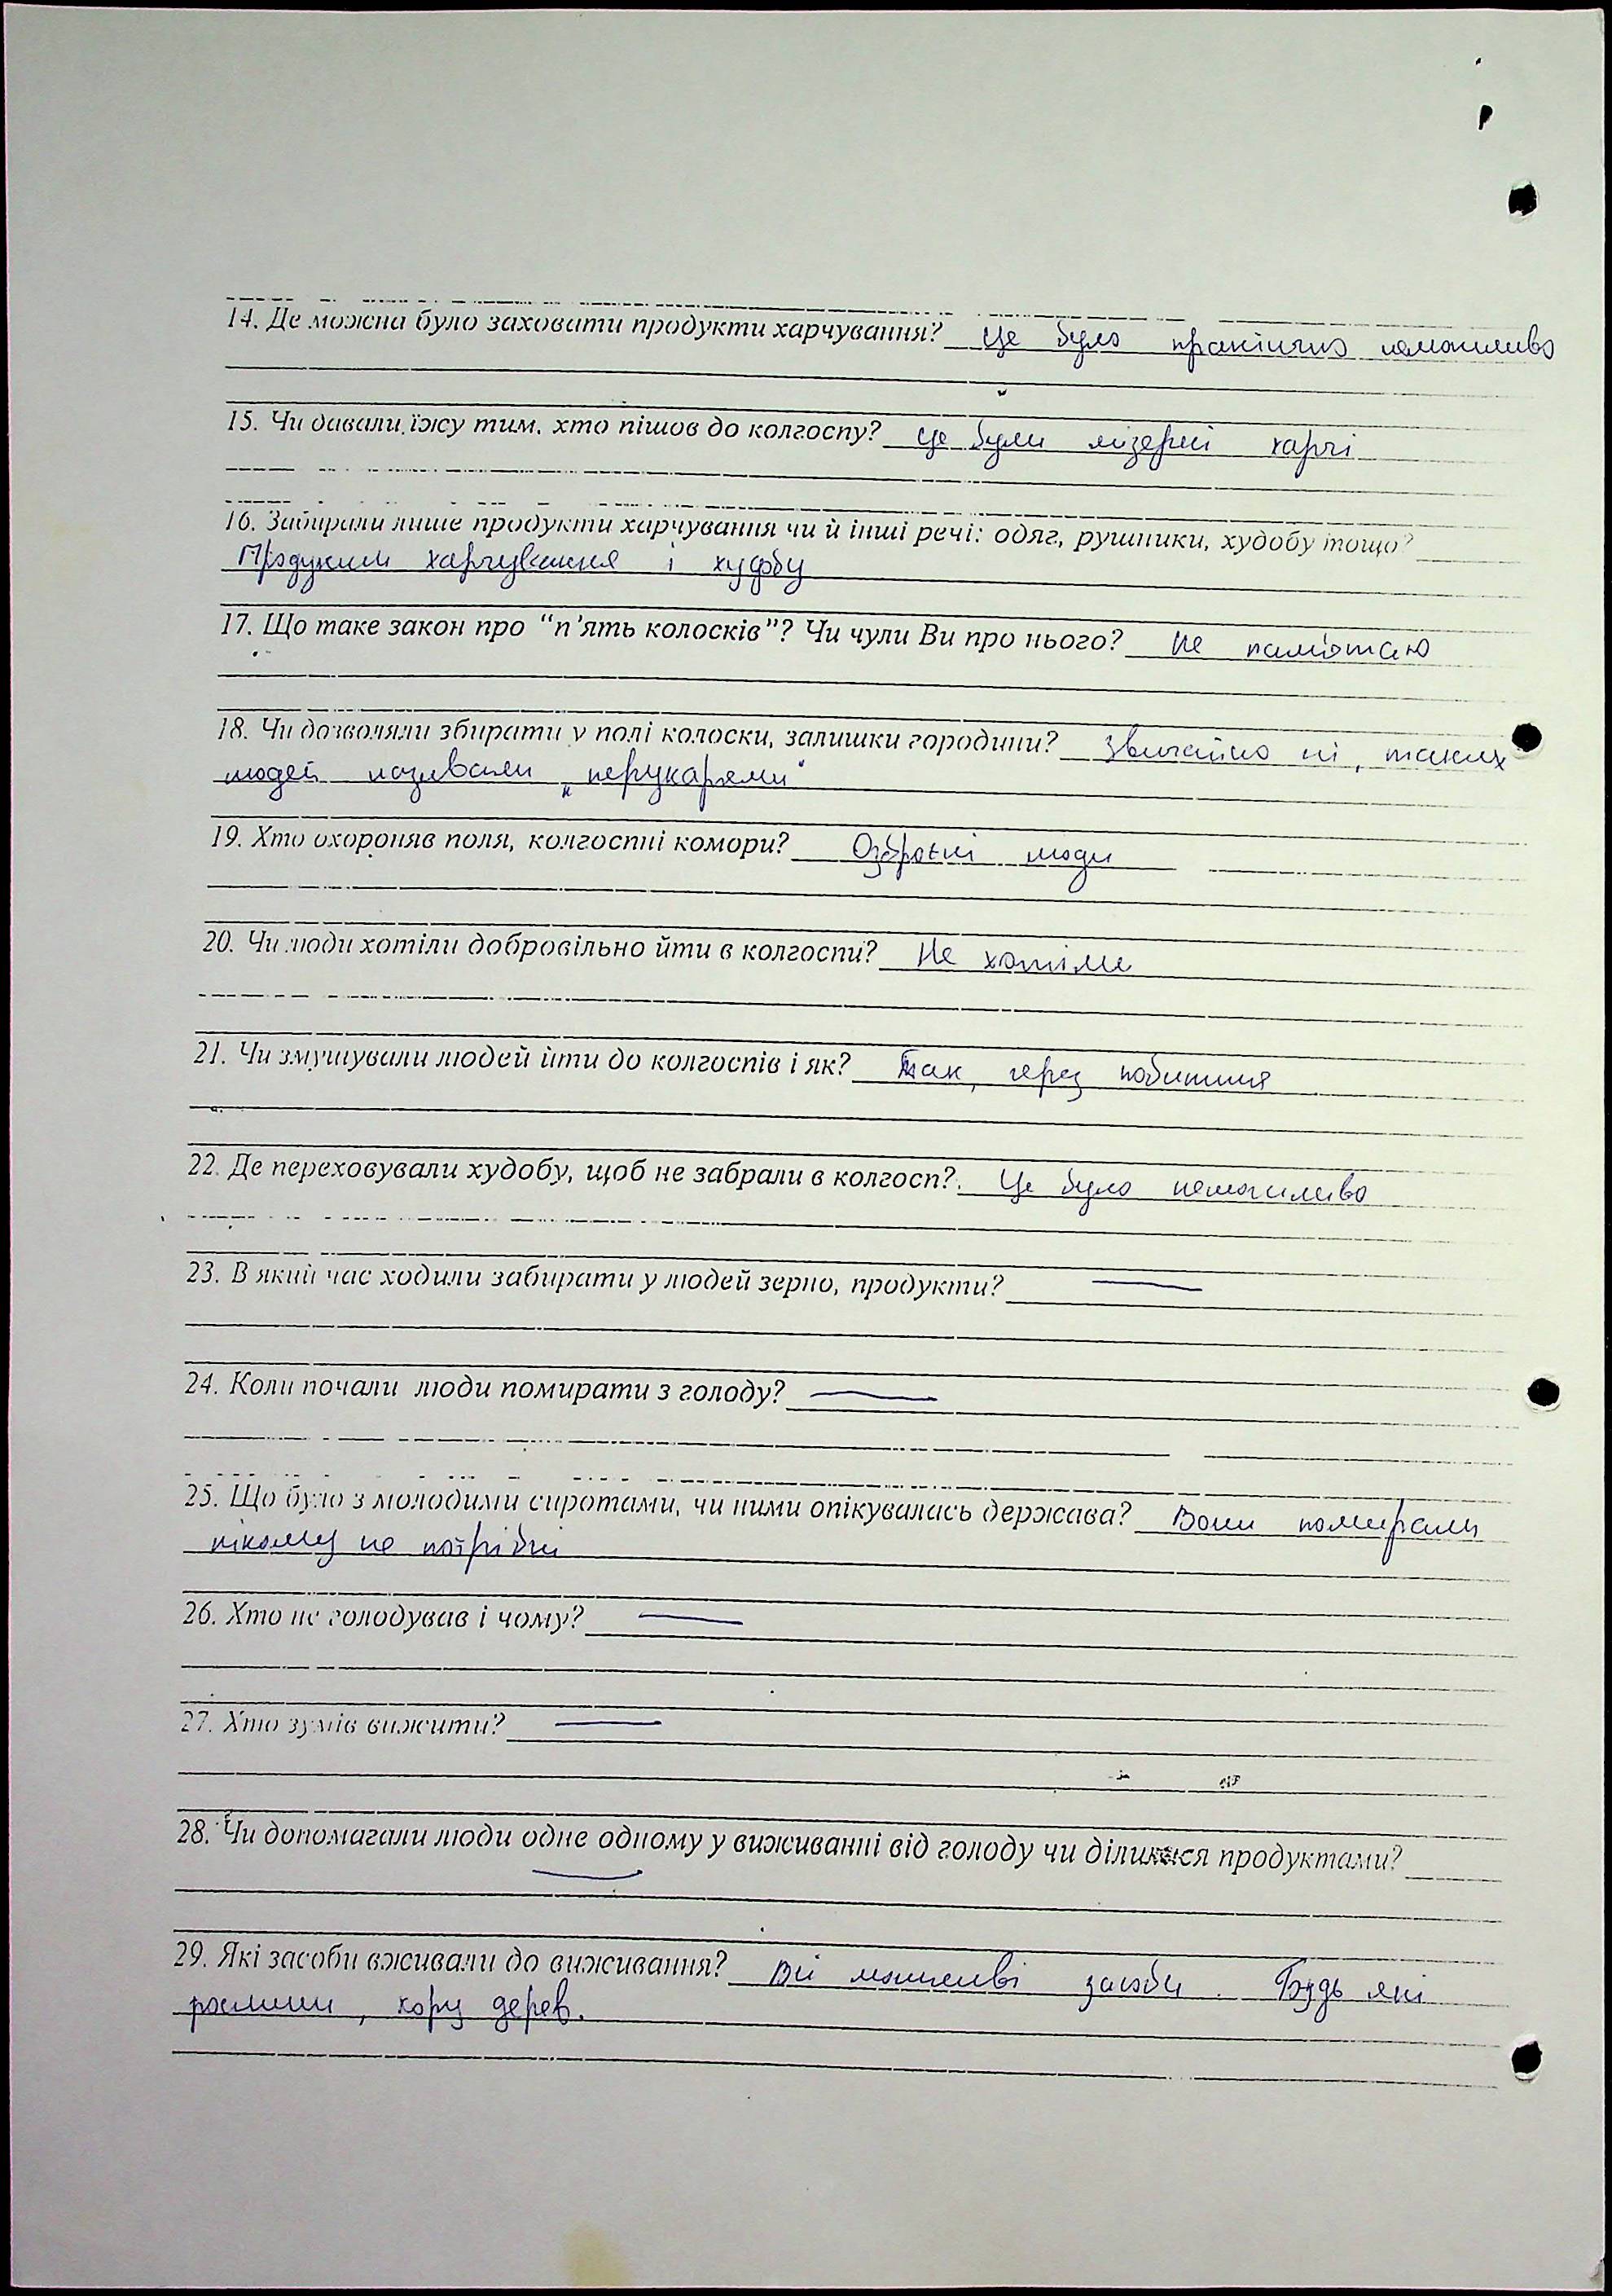 14. Де можна було заховати продукти харчування? Це було практично неможливо
15. Чи давали їжу тим, хто пішов до колгоспу? Це були мізерні харчі
16. Забирали лише продукти харчування чи й інші речі: одяг, рушники, худобу тощо?
Продукти харчування і худобу
17. Що таке закон про “п’ять колосків”? Чи чули Ви про нього? Не пам'ятаю
18. Чи дозволяли збирати у полі колоски, залишки городини? Звичайно ні, таких
людей називали „перукарями“
19. Хто охороняв поля, колгоспні комори? Озброєні люди
20. Чи люди хотіли добровільно йти в колгоспи? Не хотіли
21. Чи змушували людей йти до колгоспів і як? Так, через побиття
22. Де переховували худобу, щоб не забрали в колгосп? Це було неможливо
23. В який час ходили забирати у людей зерно, продукти? —
24. Коли почали люди помирати з голоду? —
25. Що було з молодими сиротами, чи ними опікувалась держава? Вони помирали
нікому не потрібні
26. Хто не голодував і чому? —
27. Хто зумів вижити? —
28. Чи допомагали люди одне одному у виживанні від голоду чи ділилися продуктами?
—
29. Які засоби вживали до виживання? Всі можливі засоби. Будь які
рослини, кору дерев.